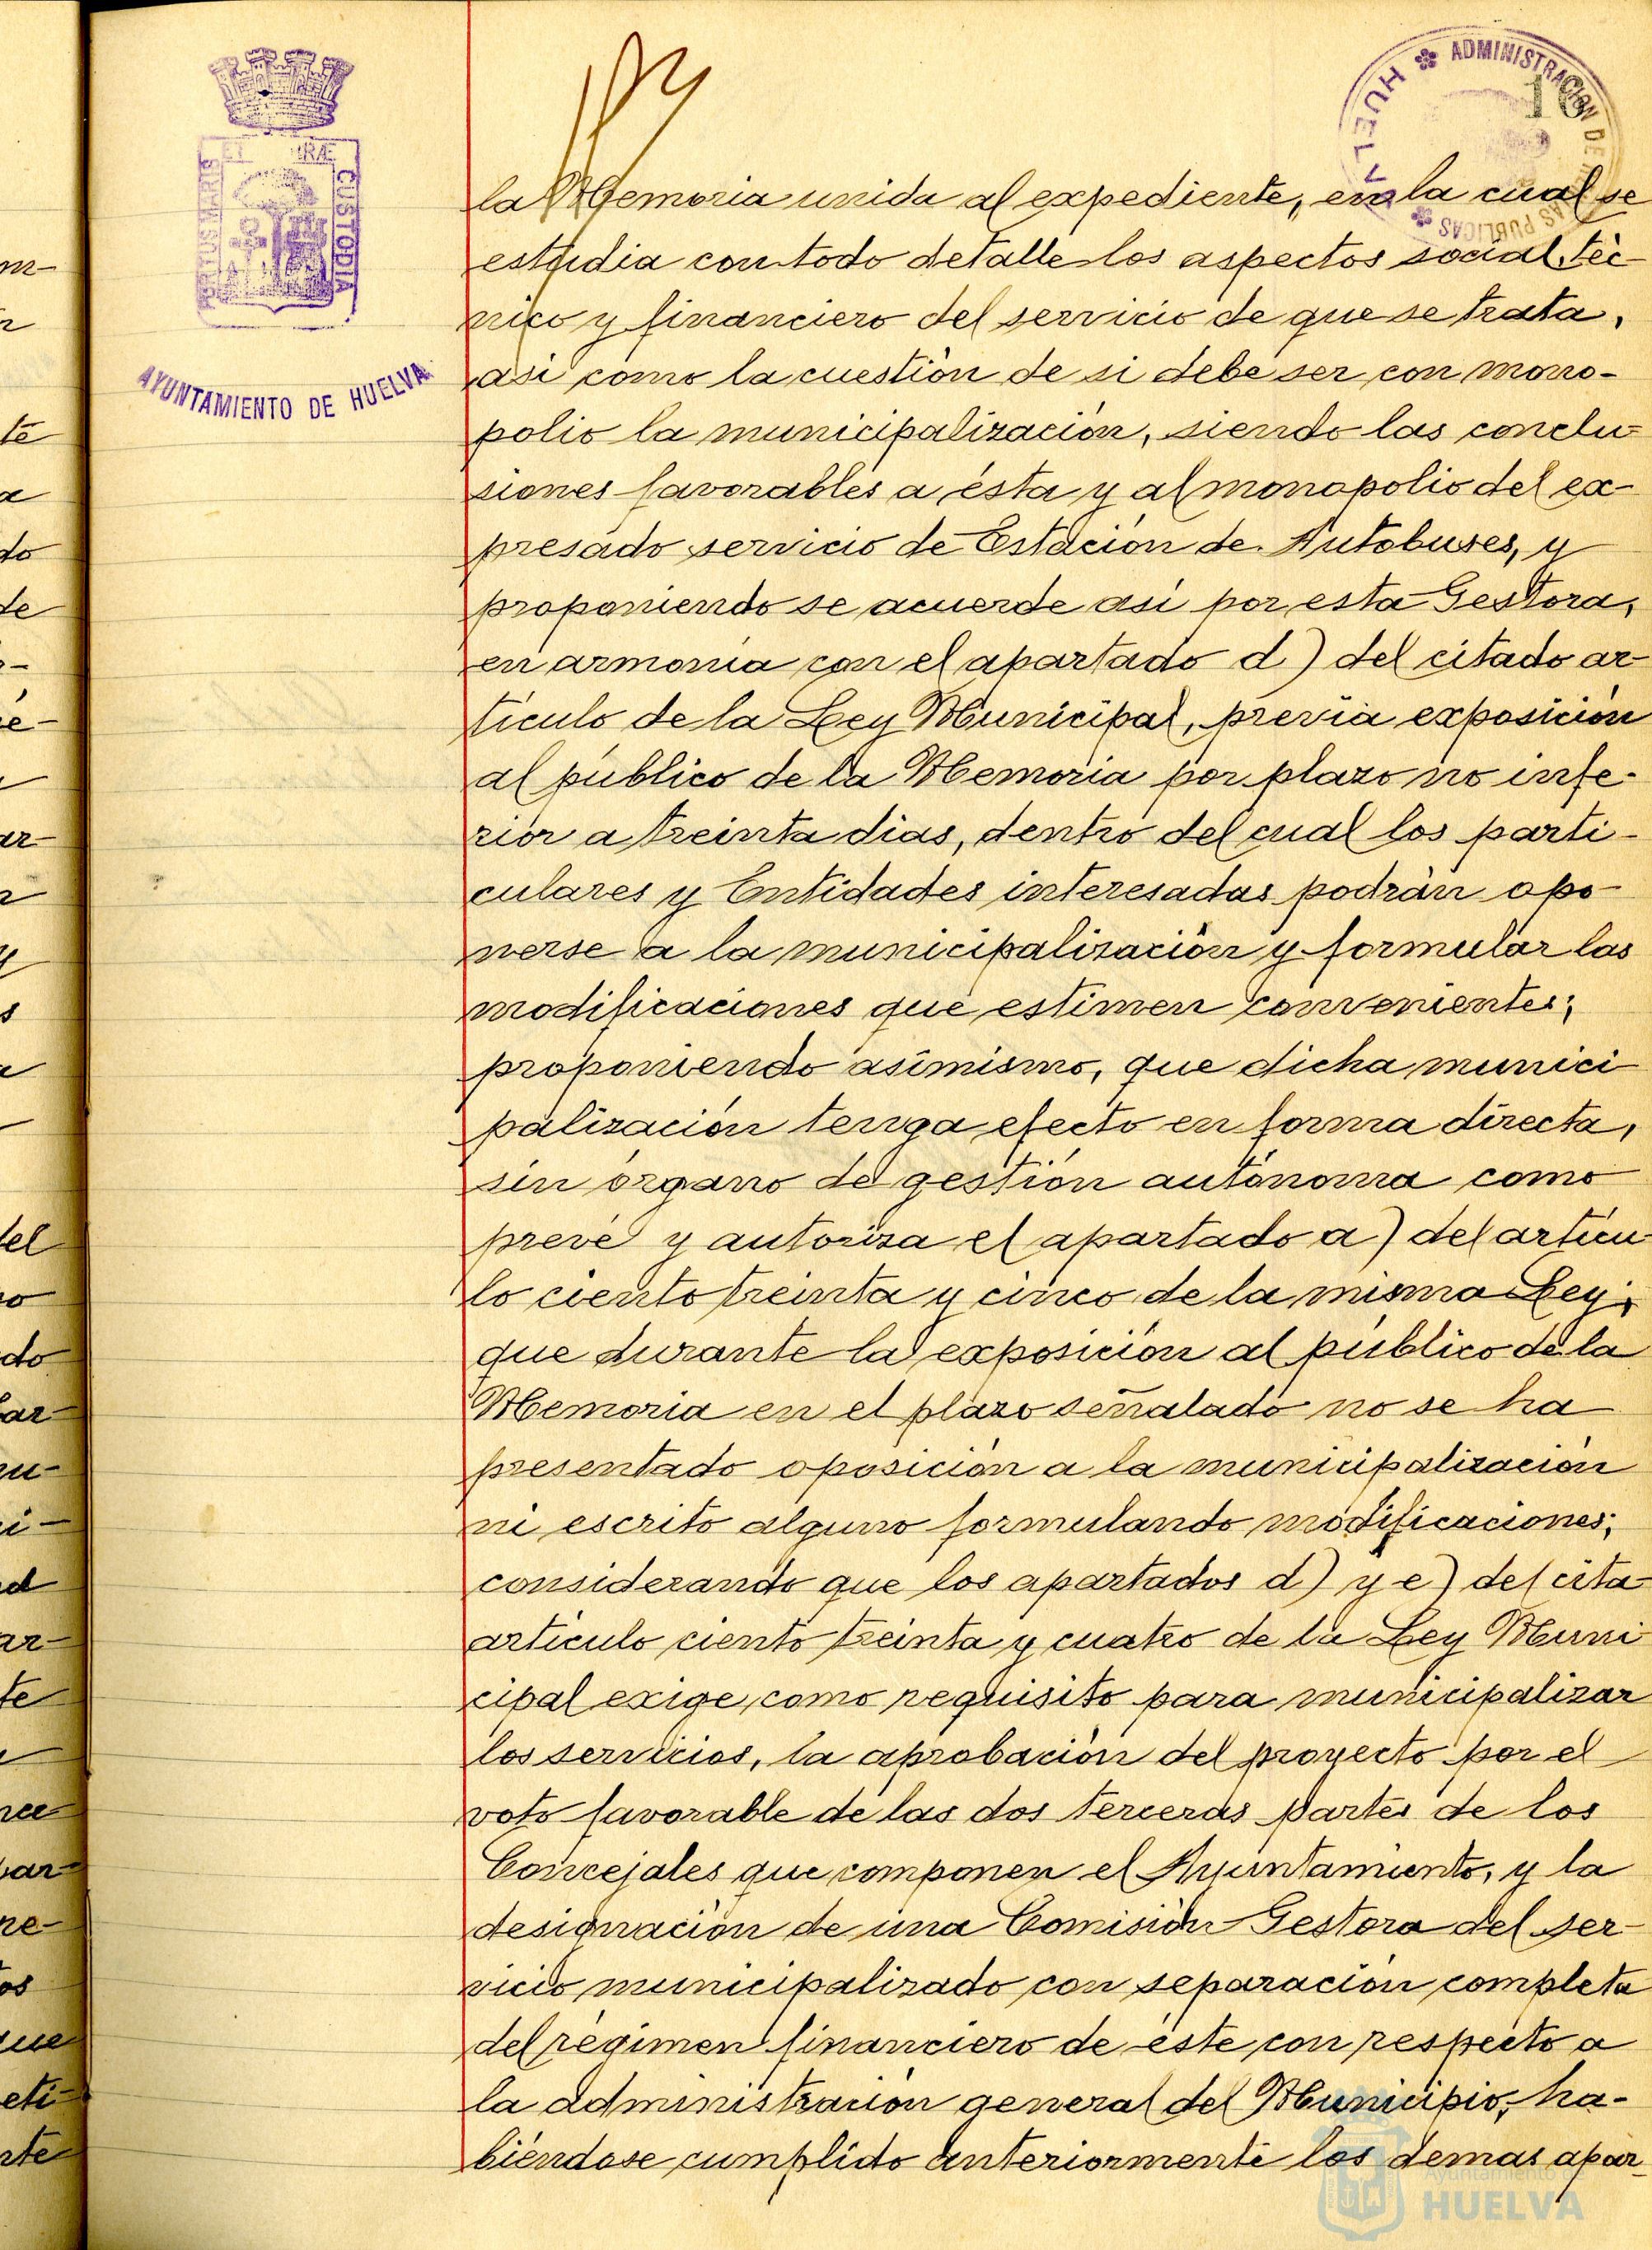 16
ADMINISTRACION DE RENTAS PUBLICAS
HUELVA
PORTUS MARIS ET TERRÆ CUSTODIA
AYUNTAMIENTO DE HUELVA
la Memoria unida al expediente, en la cual se
estudia con todo detalle los aspectos social, téc-
nico y financiero del servicio de que se trata,
así como la cuestión de si debe ser con mono-
polio la municipalización, siendo las conclu-
siones favorables a ésta y al monopolio del ex-
presado servicio de Estación de Autobuses, y
proponiendo se acuerde así por esta Gestora,
en armonía con el apartado d) del citado ar-
tículo de la Ley Municipal, previa exposición
al público de la Memoria por plazo no infe-
rior a treinta días, dentro del cual los parti-
culares y Entidades interesadas podrán opo-
nerse a la municipalización y formular las
modificaciones que estimen convenientes;
proponiendo asimismo, que dicha munici
palización tenga efecto en forma directa,
sin órgano de gestión autónoma como
prevé y autoriza el apartado a) del artícu-
lo ciento treinta y cinco de la misma Ley;
que durante la exposición al público de la
Memoria en el plazo señalado no se ha
presentado oposición a la municipalización
ni escrito alguno formulando modificaciones;
considerando que los apartados d) y e) del cita-
artículo ciento treinta y cuatro de la Ley Muni
cipal exige, como requisito para municipalizar
los servicios, la aprobación del proyecto por el
voto favorable de las dos terceras partes de los
Concejales que componen el Ayuntamiento, y la
designación de una Comisión Gestora del ser-
vicio municipalizado con separación completa
del régimen financiero de éste con respecto a
la administración general del Municipio, ha-
biéndose cumplido anteriormente los demas apar-
Ayuntamiento de
HUELVA